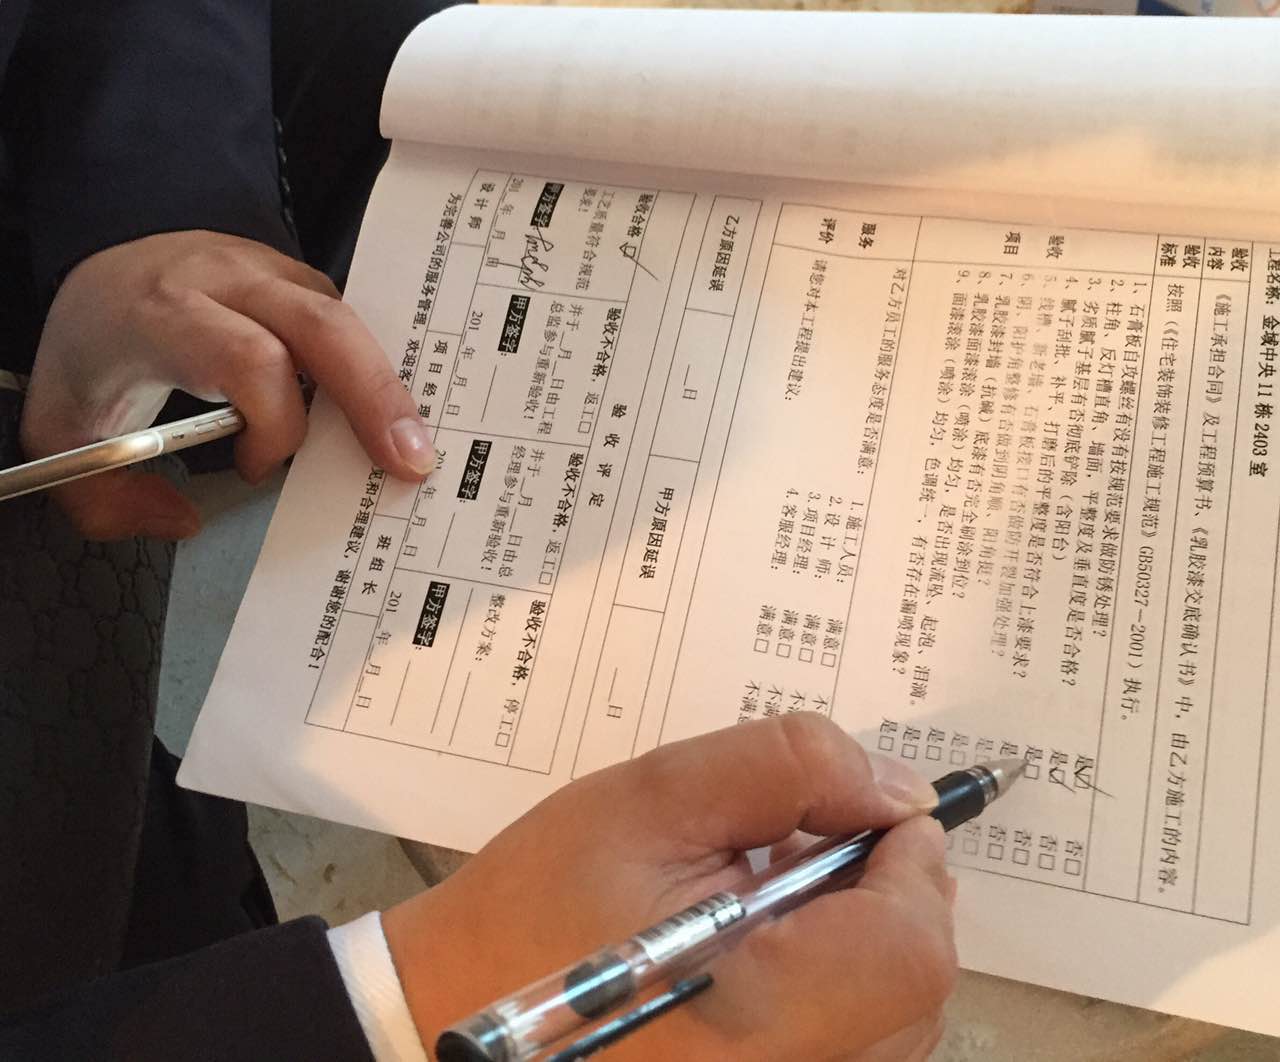 工程名称：金域中央 11 栋 2403 室
验收内容
《施工承担合同》及工程预算书、《乳胶漆交底确认书》中，由乙方施工的内容。
验收标准
按照《《住宅装饰装修工程施工规范》GB50327－2001》执行。
验收项目
1、石膏板自攻螺丝有没有按规范要求做防锈处理？ 是☑ 否□
2、柱角、反灯槽直角，墙面，平整度及垂直度是否合格？ 是☑ 否□
3、劣质腻子基层有否彻底铲除（含阳台） 是□ 否□
4、腻子刮批、补平、打磨后的平整度是否符合上漆要求？ 是□ 否□
5、线槽、新老墙、石膏板接口有否做防开裂加强处理？ 是□ 否□
6、阴、阳护角整修有否做到阴角顺、阳角挺？ 是□
7、乳胶漆封墙（抗碱）底漆有否完全刷涂到位？ 是□
8、乳胶漆面漆滚涂（喷涂）均匀，是否出现流坠、起泡、泪滴。 是□
9、面漆滚涂（喷涂）均匀、色调统一，有否存在漏喷现象？ 是□
服务评价
对乙方员工的服务态度是否满意： 1.施工人员： 满意□ 不
2.设 计 师： 满意□ 不满
3.项目经理： 满意□ 不满
4.客服经理： 满意□ 不满意
请您对本工程提出建议：
乙方原因延误 __日 甲方原因延误 __日
验 收 评 定
验收合格☑
工艺质量符合规范要求！
甲方签字
201_年_月_日
验收不合格，返工□
并于_月_日由工程总监参与重新验收！
甲方签字：
201_年_月_日
验收不合格，返工□
并于_月_日由总经理参与重新验收！
甲方签字：
20 年_月_日
验收不合格，停工□
整改方案：
甲方签字：
201_年_月_日
设 计 师 项 目 经 理 班 组 长
为完善公司的服务管理，欢迎客 见和合理建议，谢谢您的配合！